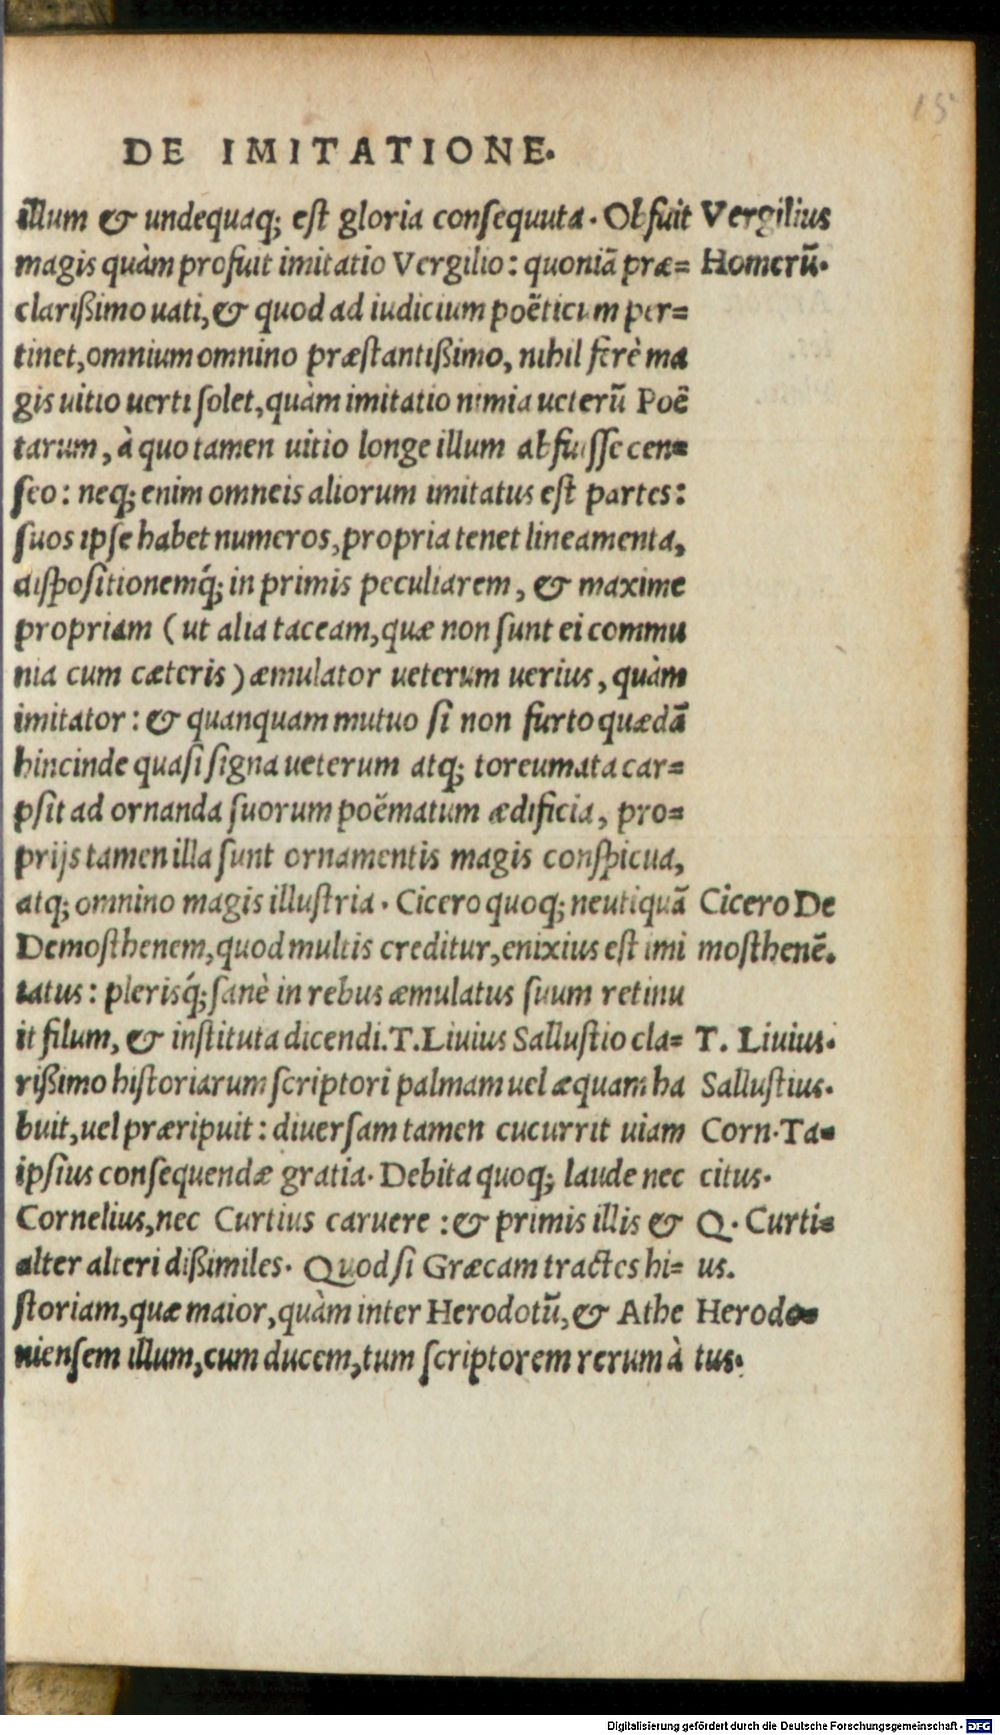 15
DE IMITATIONE.
illum & undequaq; est gloria consequuta. Obfuit
magis quàm profuit imitatio Vergilio: quoniã præ=
clarißimo uati, & quod ad iudicium poëticum per=
tinet, omnium omnino præstantißimo, nihil ferè ma
gis uitio uerti solet, quàm imitatio nimia ueterũ Poë
tarum, à quo tamen uitio longe illum abfuisse cen=
seo: neq; enim omneis aliorum imitatus est partes:
suos ipse habet numeros, propria tenet lineamenta,
dispositionemq́; in primis peculiarem, & maxime
propriam (ut alia taceam, quæ non sunt ei commu
nia cum cæteris) æmulator ueterum uerius, quàm
imitator: & quanquam mutuo si non furto quædã
hincinde quasi signa ueterum atq; toreumata car=
psit ad ornanda suorum poëmatum ædificia, pro=
prijs tamen illa sunt ornamentis magis conspicua,
atq; omnino magis illustria. Cicero quoq; neutiquã
Demosthenem, quod multis creditur, enixius est imi
tatus: plerisq́; sanè in rebus æmulatus suum retinu
it filum, & instituta dicendi. T. Liuius Sallustio cla=
rißimo historiarum scriptori palmam uel æquam ha
buit, uel præripuit: diuersam tamen cucurrit uiam
ipsius consequendæ gratia. Debita quoq; laude nec
Cornelius, nec Curtius caruere: & primis illis &
alter alteri dißimiles. Quod si Græcam tractes hi=
storiam, quæ maior, quàm inter Herodotũ, & Athe
niensem illum, cum ducem, tum scriptorem rerum à
Vergilius
Homerũ.
Cicero De
mosthenē.
T. Liuius.
Sallustius.
Corn. Ta=
citus.
Q. Curti=
us.
Herodo=
tus.
Digitalisierung gefördert durch die Deutsche Forschungsgemeinschaft - DFG